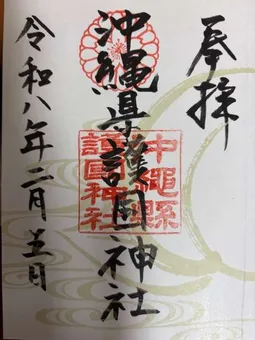 奉拝
沖縄県護国神社
沖繩縣
護國神社
令和八年二月五日